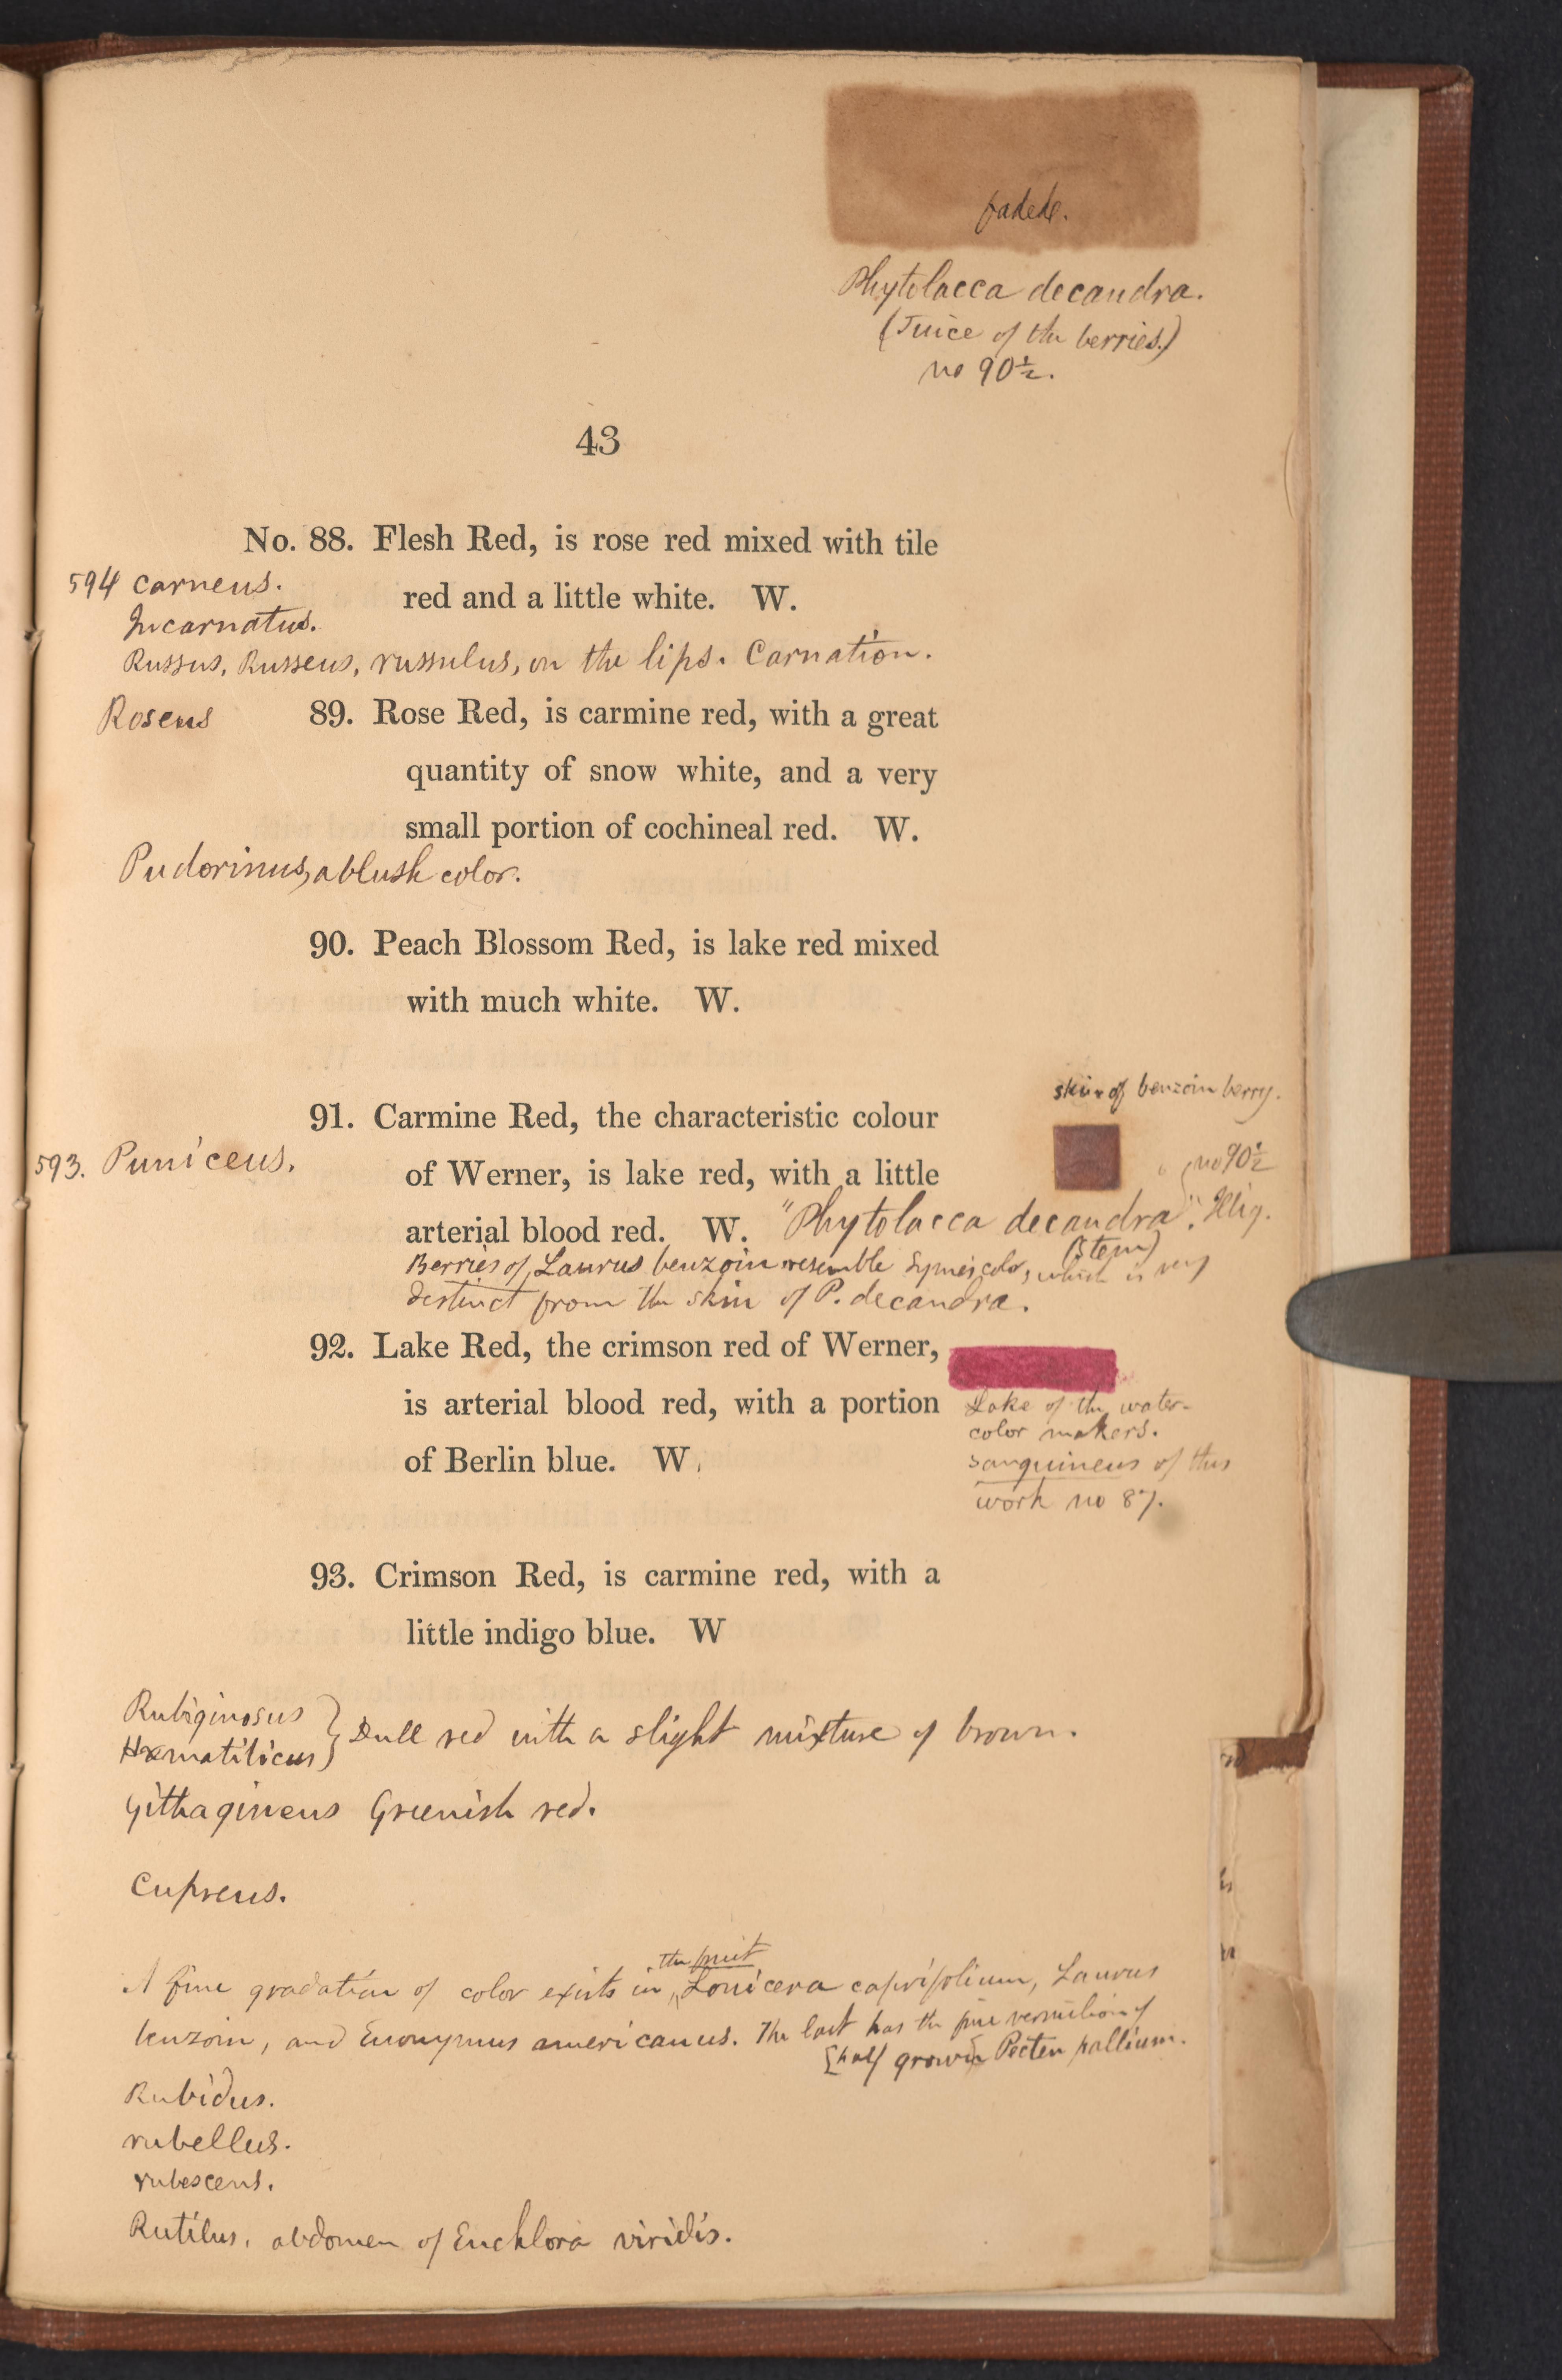 faded.
Phytolacca decandra.
(Juice of the berries.)
no 90½.
43
No. 88. Flesh Red, is rose red mixed with tile
594 Carneus.
red and a little white. W.
Incarnatus.
Russus, Russeus, russulus, on the lips. Carnation.
Roseus
89. Rose Red, is carmine red, with a great
quantity of snow white, and a very
small portion of cochineal red. W.
Pudorinus, a blush color.
90. Peach Blossom Red, is lake red mixed
with much white. W.
skin of benzoin berry.
91. Carmine Red, the characteristic colour
593. Puniceus.
of Werner, is lake red, with a little
no 90½
arterial blood red. W. "Phytolacca decandra".
(Stem)
Berries of Laurus benzoin resemble Syme's color, which is very
distinct from the skin of P. decandra.
92. Lake Red, the crimson red of Werner,
is arterial blood red, with a portion
of Berlin blue. W.
Lake of the water-
color makers.
sanguineus of this
work no 87.
93. Crimson Red, is carmine red, with a
little indigo blue. W
Rubiginosus
Hæmatiticus } Dull red with a slight mixture of brown.
Githagineus Greenish red.
Cupreus.
the fruit
A fine gradation of color exists in Lonicera caprifolium, Laurus
benzoin, and Euonymus americanus. The last has the fine vermilion of
[half grown Pecten pallium.
Rubidus.
rubellus.
rubescens.
Rutilus, abdomen of Euchlora viridis.